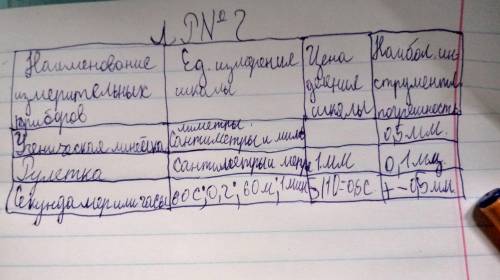 Л.Р№2
Наименование измерительных приборов
Ед. измерение шкалы
Цена деление шкалы
Наибол. инструмент. погрешность
Ученическая линейка
лиметры. сантиметры и мил
0,5мм.
Рулетка
сантиметры и метры
1мм
0,1мм
Секундомер или часы
60с; 0,2; 60м; 1мин
+-0,5мм